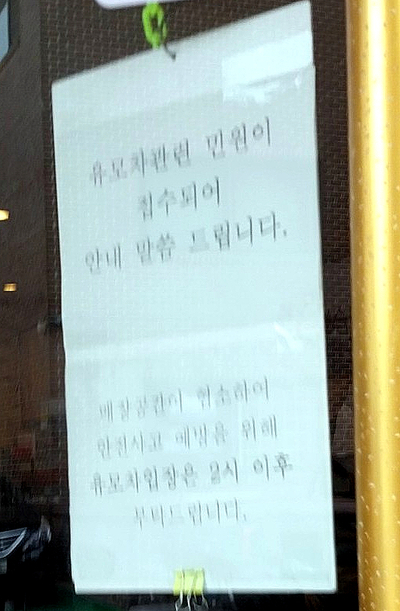 유모차관련 민원이
접수되어
안내 말씀 드립니다.
매장공간이 협소하여
안전사고 예방을 위해
유모차입장은 2시 이후
부탁드립니다.